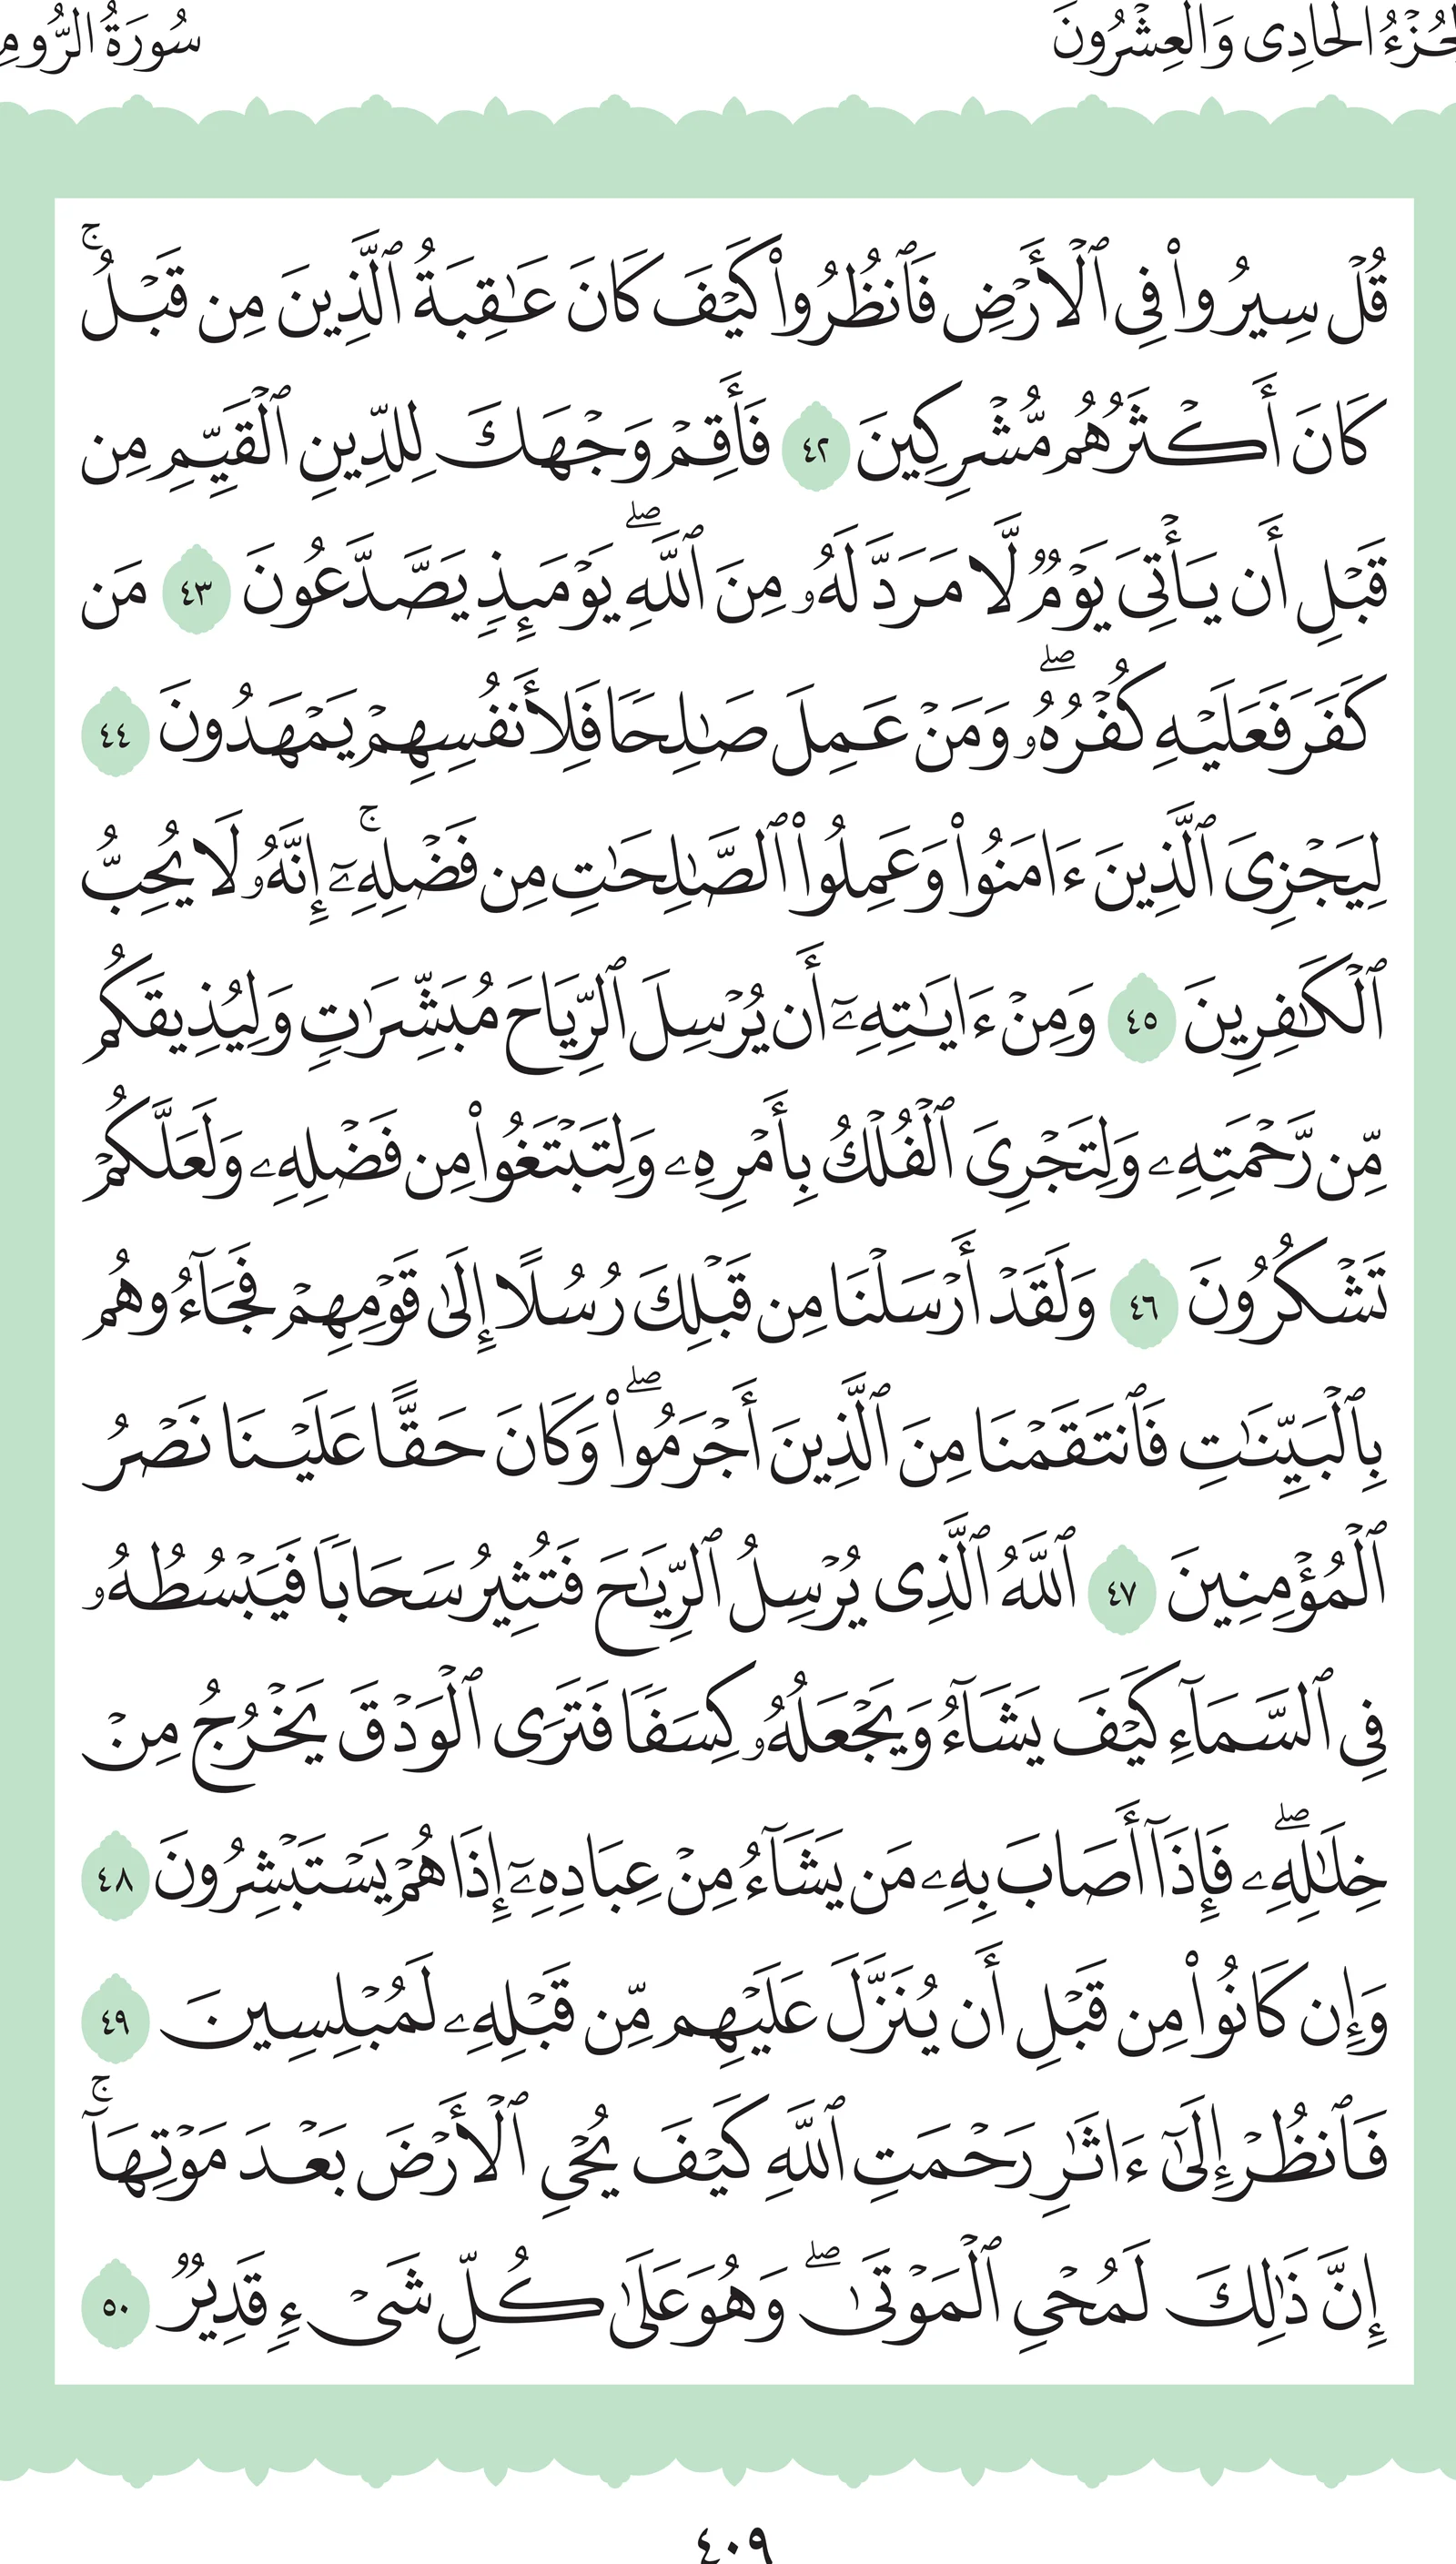 الجُزْءُ الحَادِى وَالعِشْرُونَ سُورَةُ الرُّومِ
قُلۡ سِيرُواْ فِى ٱلۡأَرۡضِ فَٱنظُرُواْ كَيۡفَ كَانَ عَـٰقِبَةُ ٱلَّذِينَ مِن قَبۡلُۚ
كَانَ أَكۡثَرُهُم مُّشۡرِكِينَ ٤٢ فَأَقِمۡ وَجۡهَكَ لِلدِّينِ ٱلۡقَيِّمِ مِن
قَبۡلِ أَن يَأۡتِىَ يَوۡمٌ لَّا مَرَدَّ لَهُۥ مِنَ ٱللَّهِۖ يَوۡمَئِذٍ يَصَّدَّعُونَ ٤٣ مَن
كَفَرَ فَعَلَيۡهِ كُفۡرُهُۥۖ وَمَنۡ عَمِلَ صَـٰلِحًا فَلِأَنفُسِهِمۡ يَمۡهَدُونَ ٤٤
لِيَجۡزِىَ ٱلَّذِينَ ءَامَنُواْ وَعَمِلُواْ ٱلصَّـٰلِحَـٰتِ مِن فَضۡلِهِۦٓۚ إِنَّهُۥ لَا يُحِبُّ
ٱلۡكَـٰفِرِينَ ٤٥ وَمِنۡ ءَايَـٰتِهِۦٓ أَن يُرۡسِلَ ٱلرِّيَاحَ مُبَشِّرَٰتٍ وَلِيُذِيقَكُم
مِّن رَّحۡمَتِهِۦ وَلِتَجۡرِىَ ٱلۡفُلۡكُ بِأَمۡرِهِۦ وَلِتَبۡتَغُواْ مِن فَضۡلِهِۦ وَلَعَلَّكُمۡ
تَشۡكُرُونَ ٤٦ وَلَقَدۡ أَرۡسَلۡنَا مِن قَبۡلِكَ رُسُلًا إِلَىٰ قَوۡمِهِمۡ فَجَآءُوهُم
بِٱلۡبَيِّنَـٰتِ فَٱنتَقَمۡنَا مِنَ ٱلَّذِينَ أَجۡرَمُواْۖ وَكَانَ حَقًّا عَلَيۡنَا نَصۡرُ
ٱلۡمُؤۡمِنِينَ ٤٧ ٱللَّهُ ٱلَّذِى يُرۡسِلُ ٱلرِّيَـٰحَ فَتُثِيرُ سَحَابًا فَيَبۡسُطُهُۥ
فِى ٱلسَّمَآءِ كَيۡفَ يَشَآءُ وَيَجۡعَلُهُۥ كِسَفًا فَتَرَى ٱلۡوَدۡقَ يَخۡرُجُ مِنۡ
خِلَـٰلِهِۦۖ فَإِذَآ أَصَابَ بِهِۦ مَن يَشَآءُ مِنۡ عِبَادِهِۦٓ إِذَا هُمۡ يَسۡتَبۡشِرُونَ ٤٨
وَإِن كَانُواْ مِن قَبۡلِ أَن يُنَزَّلَ عَلَيۡهِم مِّن قَبۡلِهِۦ لَمُبۡلِسِينَ ٤٩
فَٱنظُرۡ إِلَىٰٓ ءَاثَـٰرِ رَحۡمَتِ ٱللَّهِ كَيۡفَ يُحۡىِ ٱلۡأَرۡضَ بَعۡدَ مَوۡتِهَآۚ
إِنَّ ذَٰلِكَ لَمُحۡىِ ٱلۡمَوۡتَىٰۖ وَهُوَ عَلَىٰ كُلِّ شَىۡءٍ قَدِيرٌ ٥٠
٤٠٩